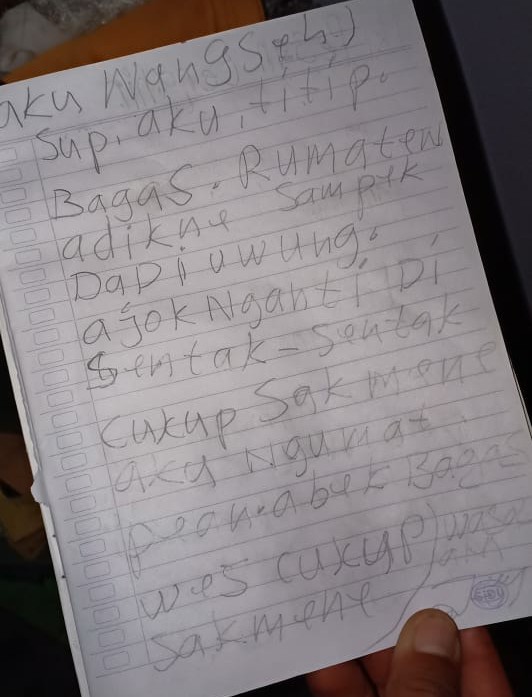 aku Wangseh)
Sup. aku, titip.
Bagas. Rumaten
adikne sampek
DaDi uwung.
ajok Nganti Di
Sentak-Sentak
cukup Sakmene
aku Ngumat.
Bagas
wes cukup)
sakmene